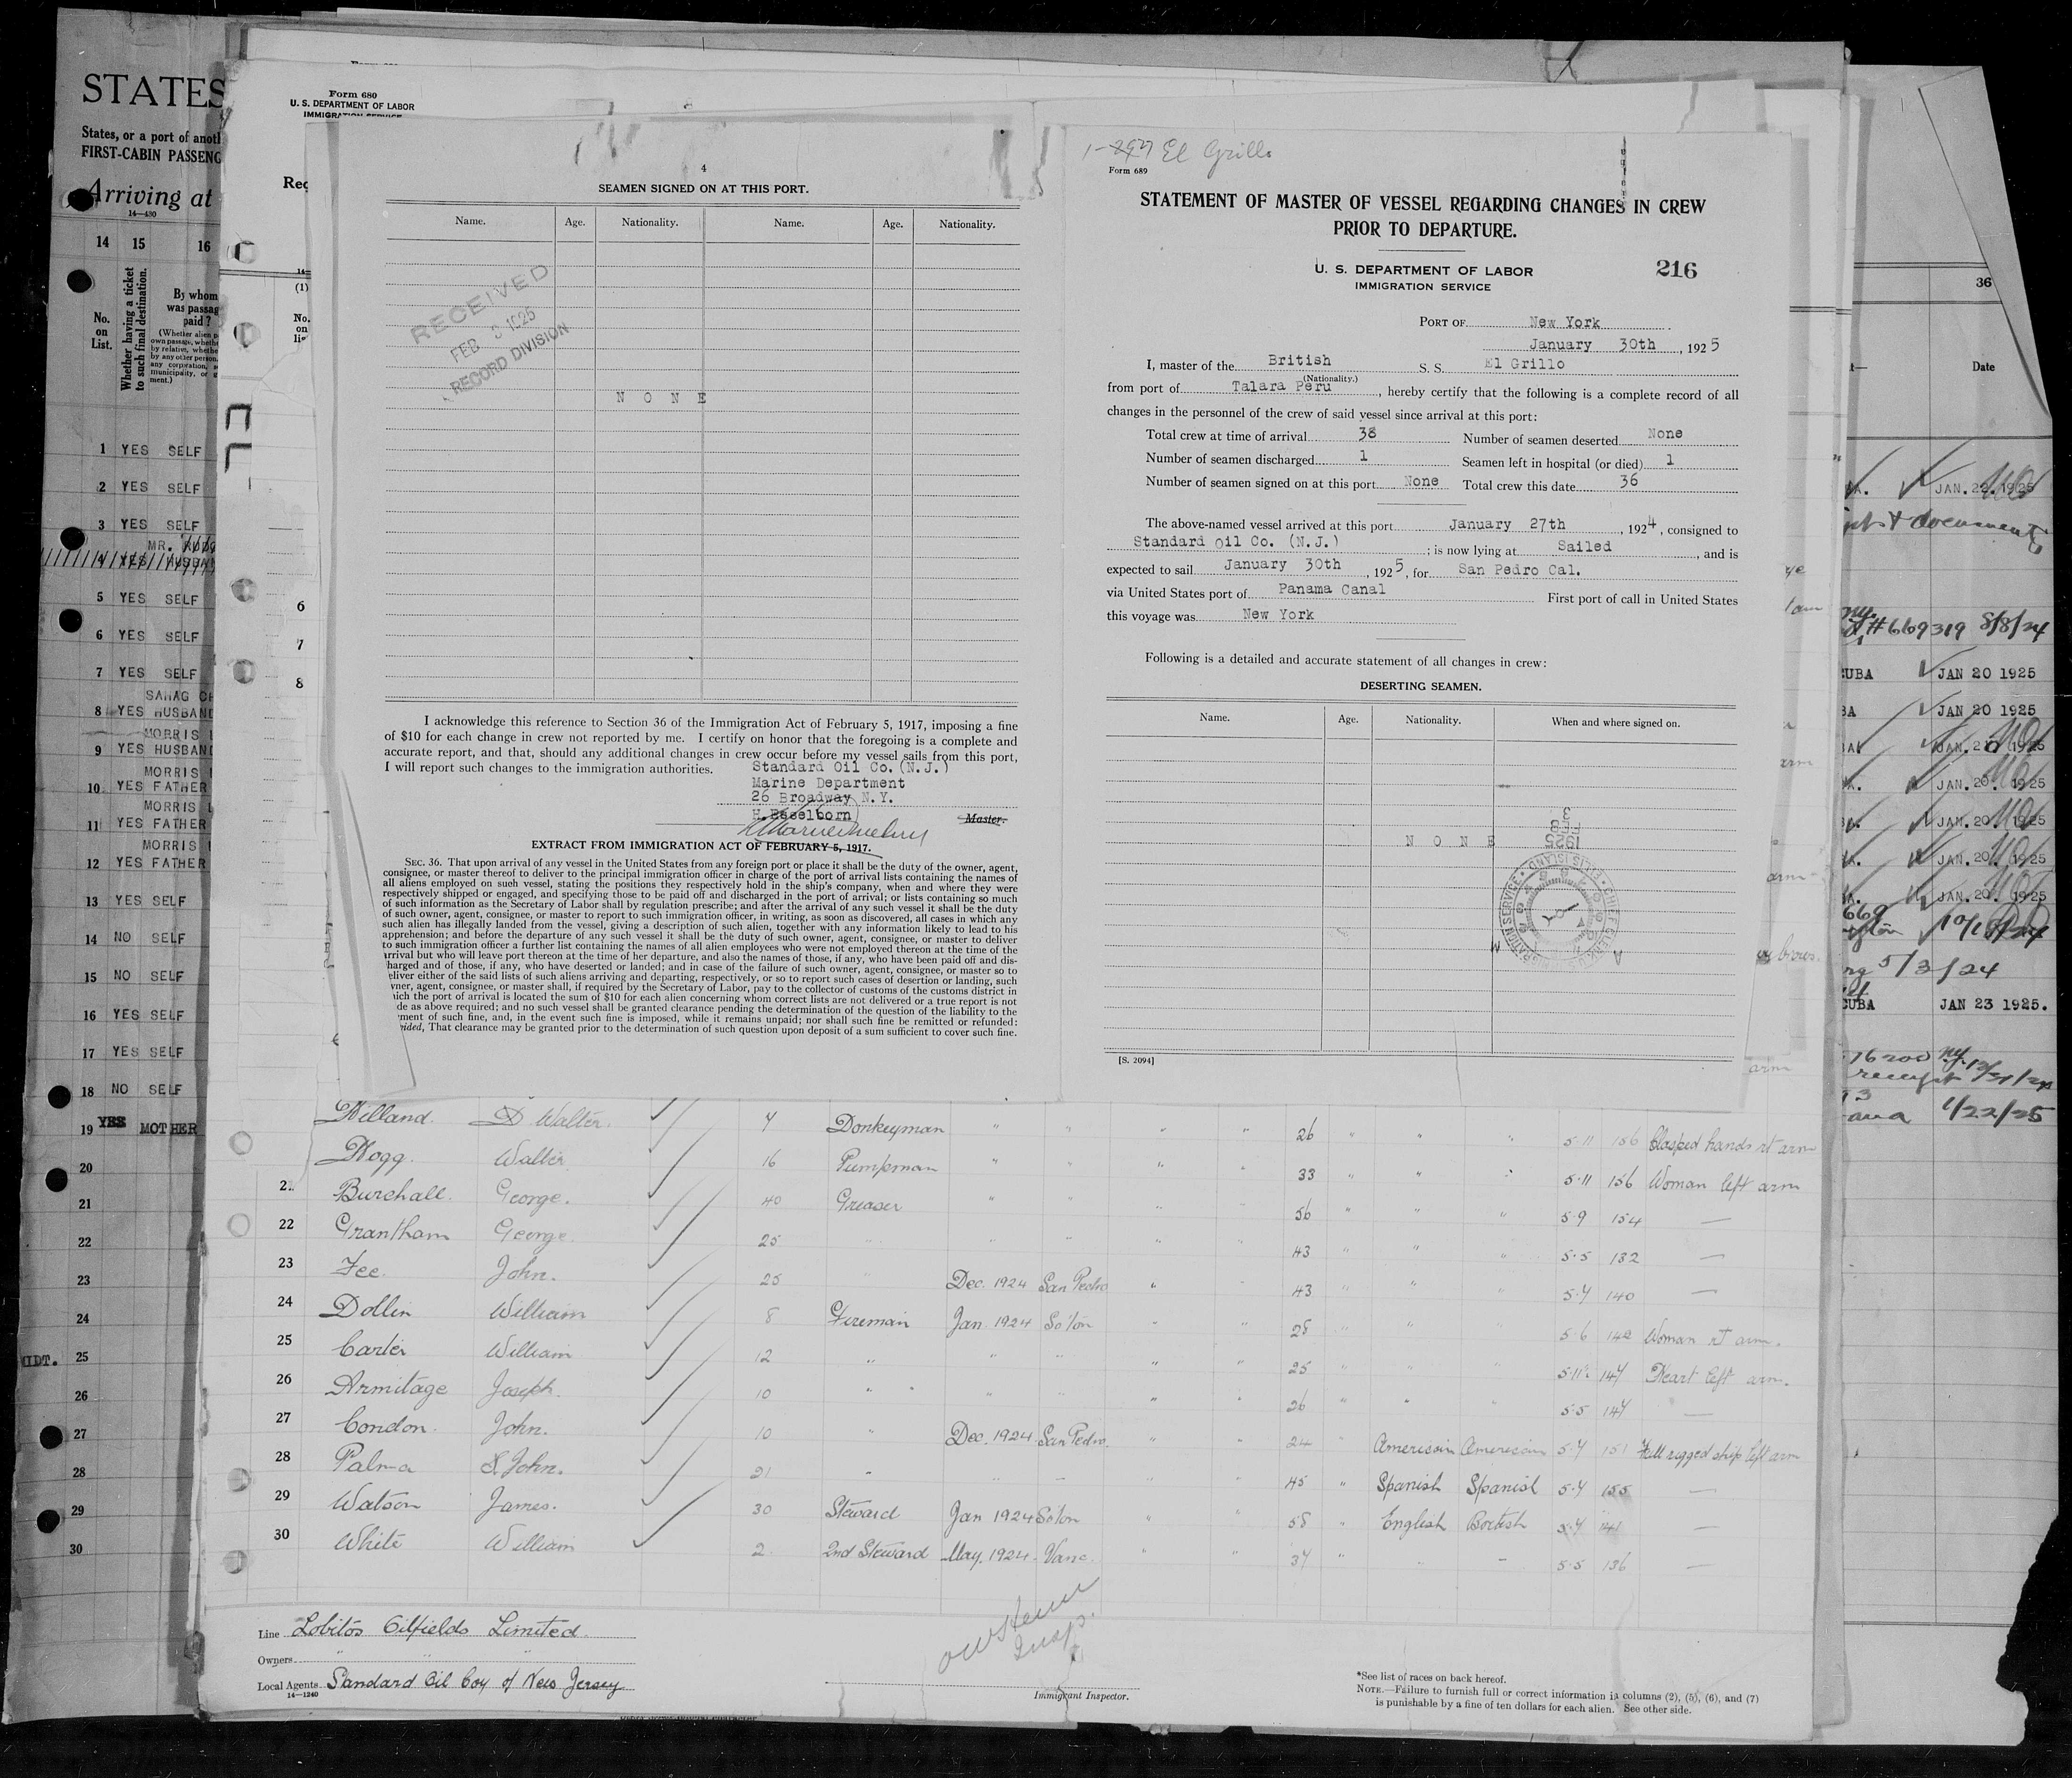 STATES
States, or a port of anoth
FIRST-CABIN PASSENG
Arriving at
14—430
14 15 16
No. on List.
Whether having a ticket to such final destination.
By whom was passag paid?
1 YES SELF
2 YES SELF
3 YES SELF
MR.
4 YES HUSBAN
5 YES SELF
6 YES SELF
7 YES SELF
8 YES HUSBAND
MORRIS
9 YES HUSBAN
MORRIS
10 YES FATHER
MORRIS
11 YES FATHER
MORRIS
12 YES FATHER
13 YES SELF
14 NO SELF
15 NO SELF
16 YES SELF
17 YES SELF
18 NO SELF
19 YES MOTHER
20
21
22
23
24
25
26
27
28
29
30
Form 680
U. S. DEPARTMENT OF LABOR
IMMIGRATION SERVICE
Rec
(1)
No. on
6
7
8
4
SEAMEN SIGNED ON AT THIS PORT.
Name. Age. Nationality. Name. Age. Nationality.
RECEIVED
FEB 1925
RECORD DIVISION
NONE
I acknowledge this reference to Section 36 of the Immigration Act of February 5, 1917, imposing a fine
of $10 for each change in crew not reported by me. I certify on honor that the foregoing is a complete and
accurate report, and that, should any additional changes in crew occur before my vessel sails from this port,
I will report such changes to the immigration authorities. Standard Oil Co. (N.J.)
Marine Department
26 Broadway N.Y.
H. Easelborn Master.
EXTRACT FROM IMMIGRATION ACT OF FEBRUARY 5, 1917.
SEC. 36. That upon arrival of any vessel in the United States from any foreign port or place it shall be the duty of the owner, agent,
consignee, or master thereof to deliver to the principal immigration officer in charge of the port of arrival lists containing the names of
all aliens employed on such vessel, stating the positions they respectively hold in the ship's company, when and where they were
respectively shipped or engaged, and specifying those to be paid off and discharged in the port of arrival; or lists containing so much
of such information as the Secretary of Labor shall by regulation prescribe; and after the arrival of any such vessel it shall be the duty
of such owner, agent, consignee, or master to report to such immigration officer, in writing, as soon as discovered, all cases in which any
such alien has illegally landed from the vessel, giving a description of such alien, together with any information likely to lead to his
apprehension; and before the departure of any such vessel it shall be the duty of such owner, agent, consignee, or master to deliver
to such immigration officer a further list containing the names of all alien employees who were not employed thereon at the time of the
arrival but who will leave port thereon at the time of her departure, and also the names of those, if any, who have been paid off and dis-
harged and of those, if any, who have deserted or landed; and in case of the failure of such owner, agent, consignee, or master so to
eliver either of the said lists of such aliens arriving and departing, respectively, or so to report such cases of desertion or landing, such
wner, agent, consignee, or master shall, if required by the Secretary of Labor, pay to the collector of customs of the customs district in
hich the port of arrival is located the sum of $10 for each alien concerning whom correct lists are not delivered or a true report is not
de as above required; and no such vessel shall be granted clearance pending the determination of the question of the liability to the
ment of such fine, and, in the event such fine is imposed, while it remains unpaid; nor shall such fine be remitted or refunded:
vided, That clearance may be granted prior to the determination of such question upon deposit of a sum sufficient to cover such fine.
El Grillo
Form 689
STATEMENT OF MASTER OF VESSEL REGARDING CHANGES IN CREW
PRIOR TO DEPARTURE.
U. S. DEPARTMENT OF LABOR
IMMIGRATION SERVICE
216
PORT OF New York
January 30th, 1925
I, master of the British S. S. El Grillo
(Nationality.)
from port of Talara Peru, hereby certify that the following is a complete record of all
changes in the personnel of the crew of said vessel since arrival at this port:
Total crew at time of arrival 38 Number of seamen deserted None
Number of seamen discharged 1 Seamen left in hospital (or died) 1
Number of seamen signed on at this port None Total crew this date 36
The above-named vessel arrived at this port January 27th, 1924, consigned to
Standard Oil Co. (N.J.); is now lying at Sailed, and is
expected to sail January 30th, 1925, for San Pedro Cal.
via United States port of Panama Canal First port of call in United States
this voyage was New York
Following is a detailed and accurate statement of all changes in crew:
DESERTING SEAMEN.
Name. Age. Nationality. When and where signed on.
NONE
[S. 2094]
36
Date
JAN. 22. 1925
#669319 8/8/24
CUBA JAN 20 1925
JAN 20 1925
JAN. 20. 1925
JAN. 20. 1925
JAN. 20. 1925
JAN. 20. 1925
5/3/24
CUBA JAN 23 1925.
receipt
1/22/25
Walter. 7 Donkeyman " " " " 26 " " " 5·11 156 Clasped hands rt arm
Hogg. Walter 16 Pumpman " " " " 33 " " " 5·11 156 Woman left arm
Burchall. George. 40 Greaser " " " " 56 " " " 5·9 154 —
22 Grantham George. 25 " " " " " 43 " " " 5·5 132 —
23 Fee. John. 25 " Dec. 1924 San Pedro " " 43 " " " 5·7 140 —
24 Dollin William 8 Fireman Jan. 1924 So'ton " " 28 " " " 5·6 142 Woman rt arm.
25 Carter William 12 " " " " " 25 " " " 5·11 147 Heart left arm.
26 Armitage Joseph. 10 " " " " " 26 " " " 5·5 147 —
27 Condon. John. 10 " Dec. 1924 San Pedro. " " 24 " American American 5·7 151 Full rigged ship left arm
28 Palma S. John. 21 " " " 45 " Spanish Spanish 5·7 155 —
29 Watson James. 30 Steward Jan 1924 So'ton " " 58 " English British 5·7 141 —
30 White William 2. 2nd Steward May. 1924 Vanc. " " 37 " " " 5·5 136 —
Line Lobitos Oilfields Limited.
Owners " " "
Local Agents Standard Oil Coy of New Jersey
14—1240
Immigrant Inspector.
*See list of races on back hereof.
NOTE.—Failure to furnish full or correct information in columns (2), (5), (6), and (7)
is punishable by a fine of ten dollars for each alien. See other side.